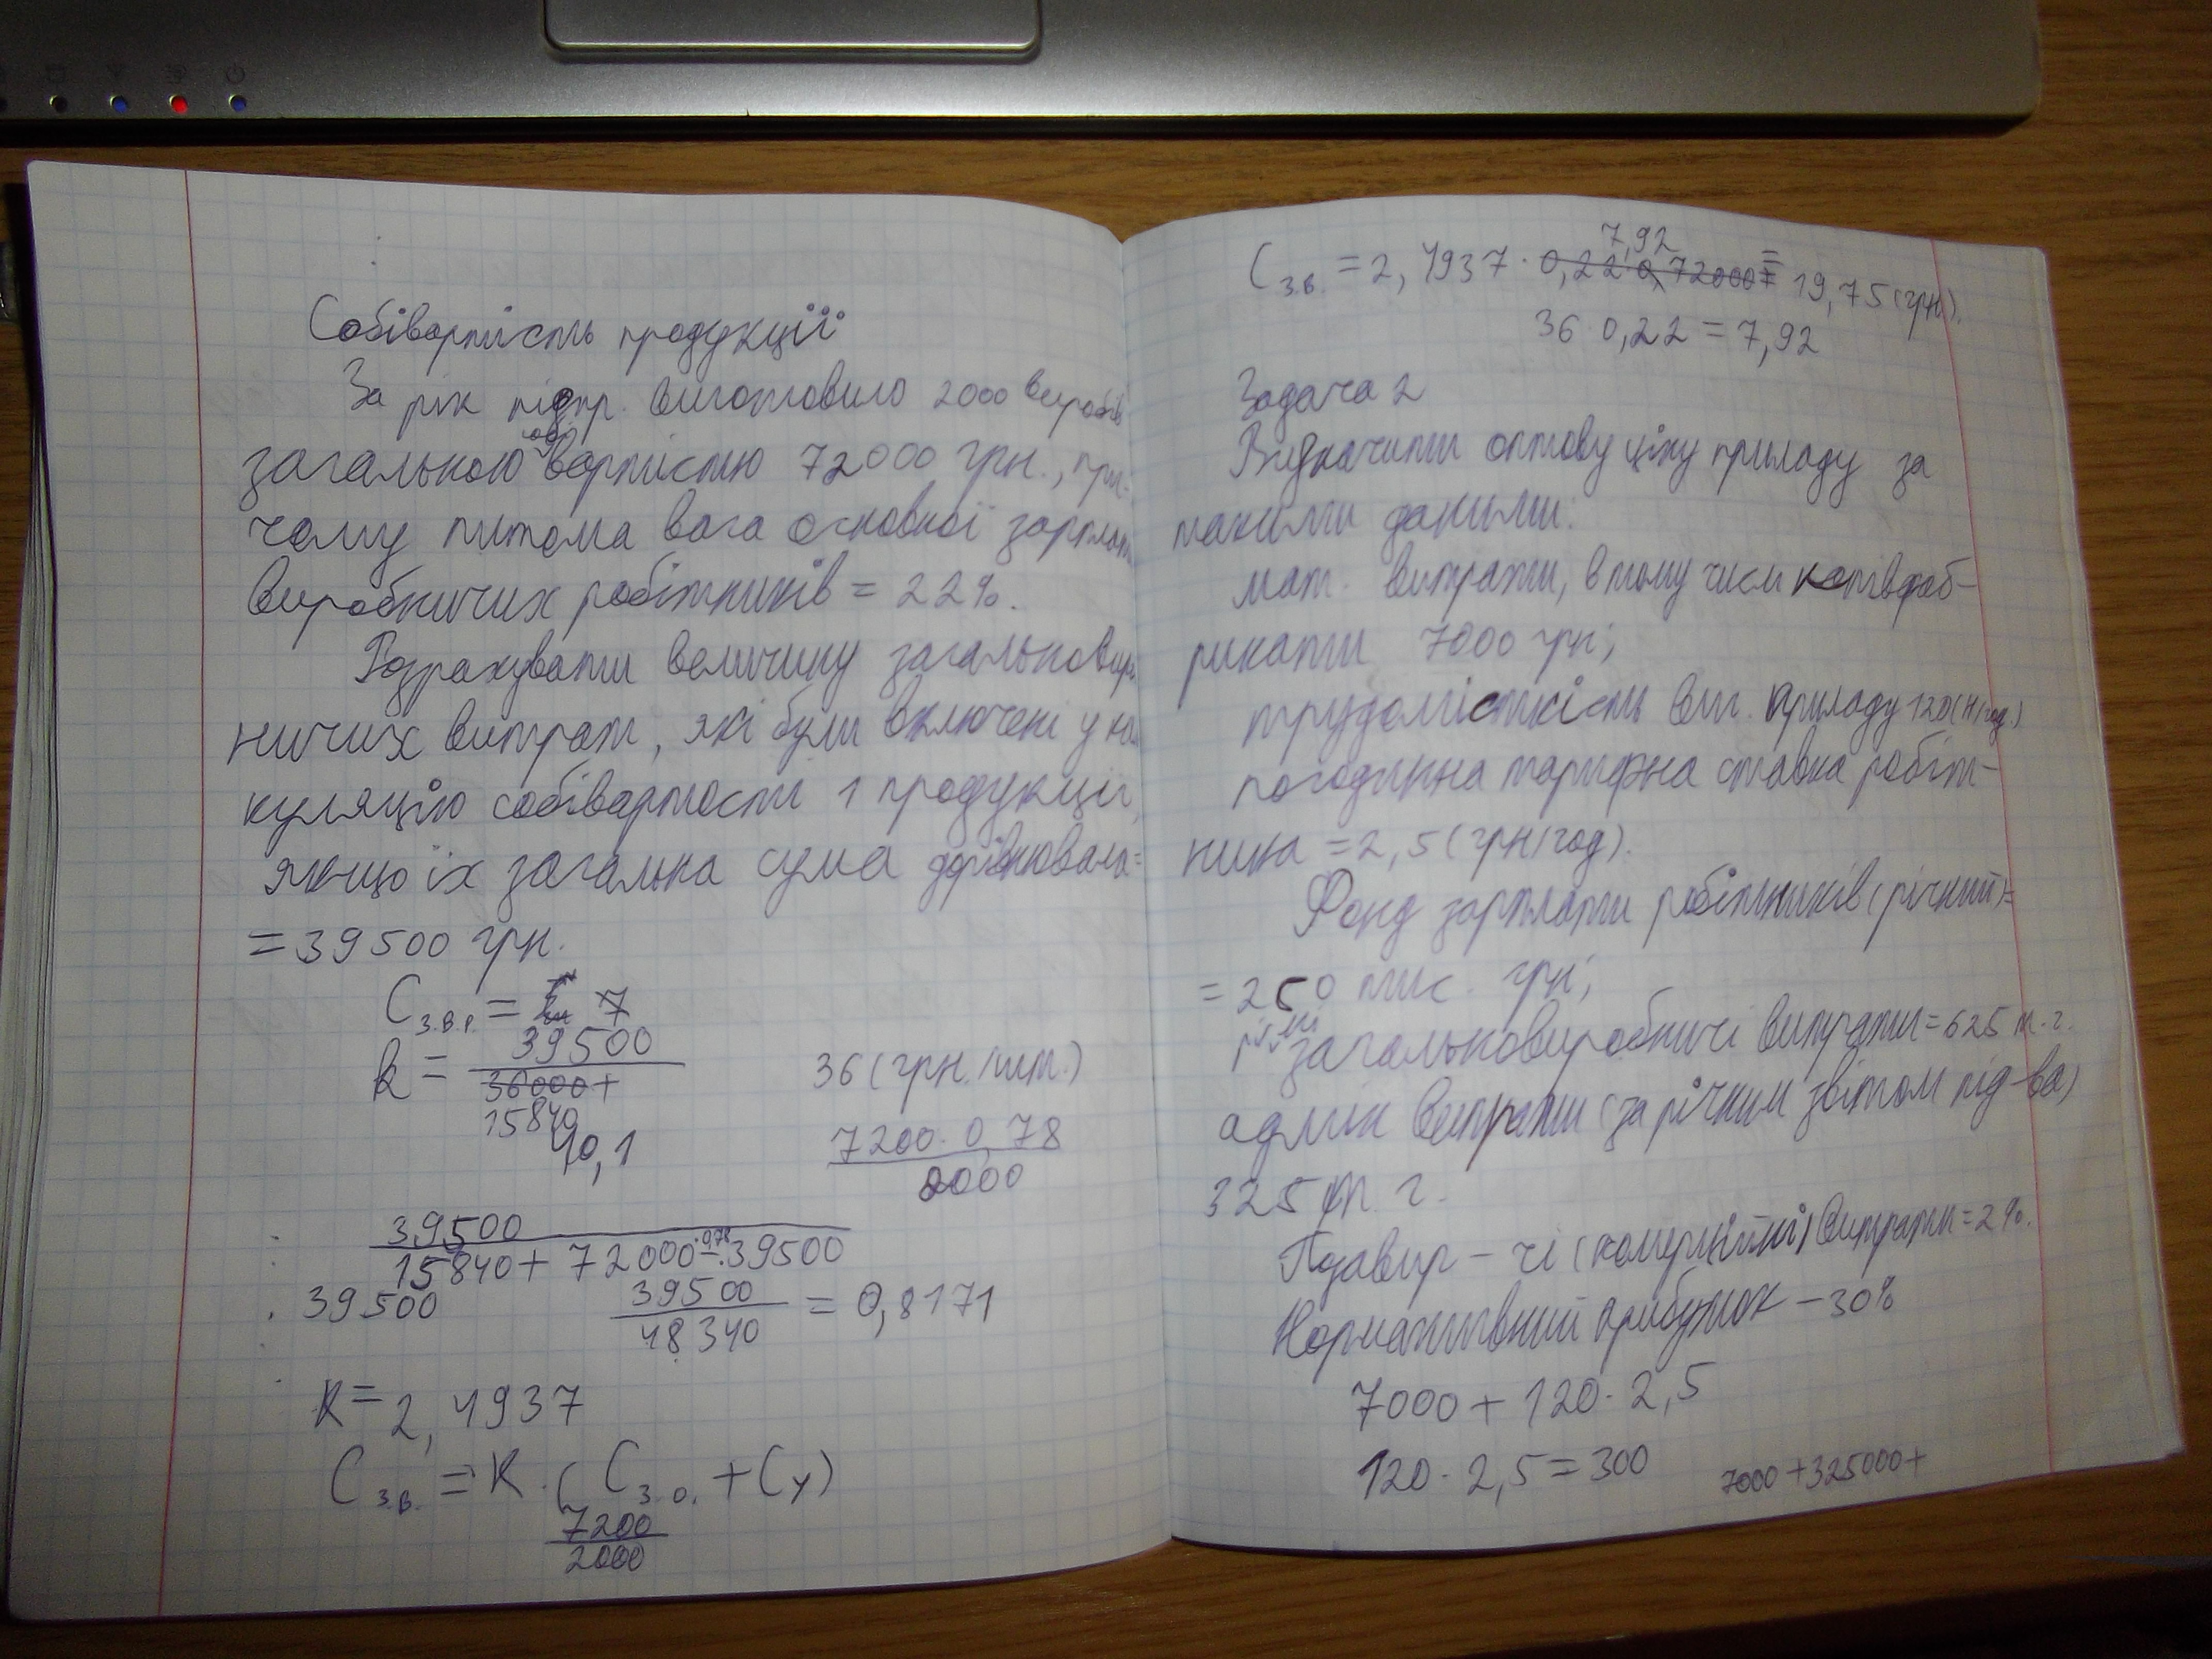 Собівартість продукції
За рік підпр. виготовило 2000 виробів
загальною собівартістю 72000 грн., при-
чому питома вага основної зарплат
виробничих робітників = 22%.
Розрахувати величину загальновир
ничих витрат, які були включені у ка
куляцію собівартості 1 продукції,
якщо їх загальна сума дорівнювала=
=39500 грн.
C з.в.р. =
k = 39500
36000+
15840
40,1
36 (грн./шт.)
7200·0,78
2000
39500
15840+72000·0,78-39500
39500
39500
48340
= 0,8171
K=2,4937
C з.в. = K·(C з.о. + Cу)
7200
2000
7,92
C з.в. = 2,4937·0,22·0,72000= = 19,75(грн).
36 0,22 = 7,92
Задача 2
Визначити оптову ціну приладу за
такими даними:
мат. витрати, в тому числі напівфаб-
рикати 7000 грн;
трудомісткість виг. приладу 120(н/год)
погодинна тарифна ставка робіт-
ника =2,5(грн/год).
Фонд зарплати робітників (річний)=
=250 тис. грн;
загальновиробничі витрати=625 т.г.
адмін витрати (за річним звітом під-ва)
325 т.г.
Позавир-чі (комерційні) витрати=2%.
Нормативний прибуток -30%
7000+120·2,5
120·2,5=300
7000+325000+